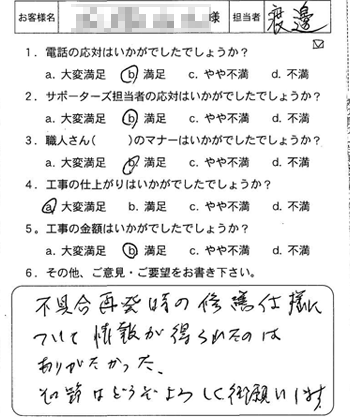 お客様名 様 担当者 渡邊
1．電話の応対はいかがでしたでしょうか？
a. 大変満足 b. 満足 c. やや不満 d. 不満
2．サポーターズ担当者の応対はいかがでしたでしょうか？
a. 大変満足 b. 満足 c. やや不満 d. 不満
3．職人さん（　　）のマナーはいかがでしたでしょうか？
a. 大変満足 b. 満足 c. やや不満 d. 不満
4．工事の仕上がりはいかがでしたでしょうか？
a. 大変満足 b. 満足 c. やや不満 d. 不満
5。工事の金額はいかがでしたでしょうか？
a. 大変満足 b. 満足 c. やや不満 d. 不満
6．その他、ご意見・ご要望をお書き下さい。
不具合再発時の修繕仕様に
ついて情報が得られたのは
ありがたかった、
はどうぞよろしく御願いします